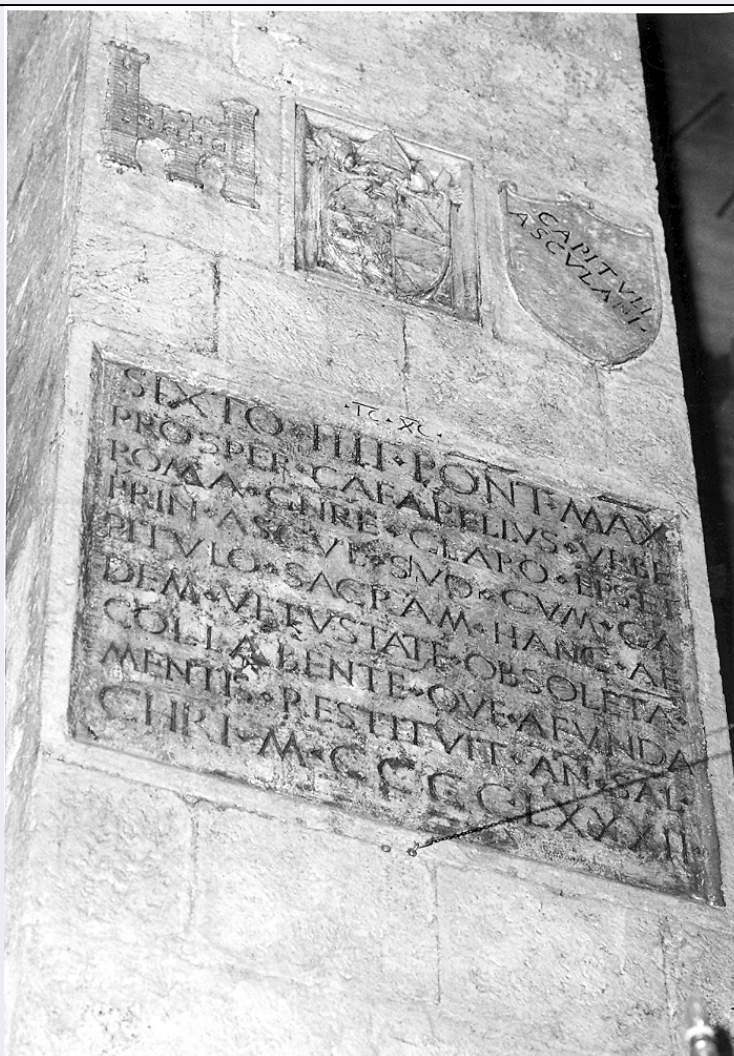 CAPITVLI
ASCVLANI·
SIXTO · IIII · PONT · MAX
PROSPER · CAFARELIVS · VRBE
ROMA · GNRE · CLARO · EPS ET
PRIN · ASCVL · SVO · CVM · CA
PITVLO · SACRAM · HANC · AE
DEM · VETVSTATE · OBSOLETA ·
COLLABENTE · QVE · AFVNDA
MENTIS · RESTITVIT · AN · SAL ·
CHRI · M · CCCCLXXXII ·